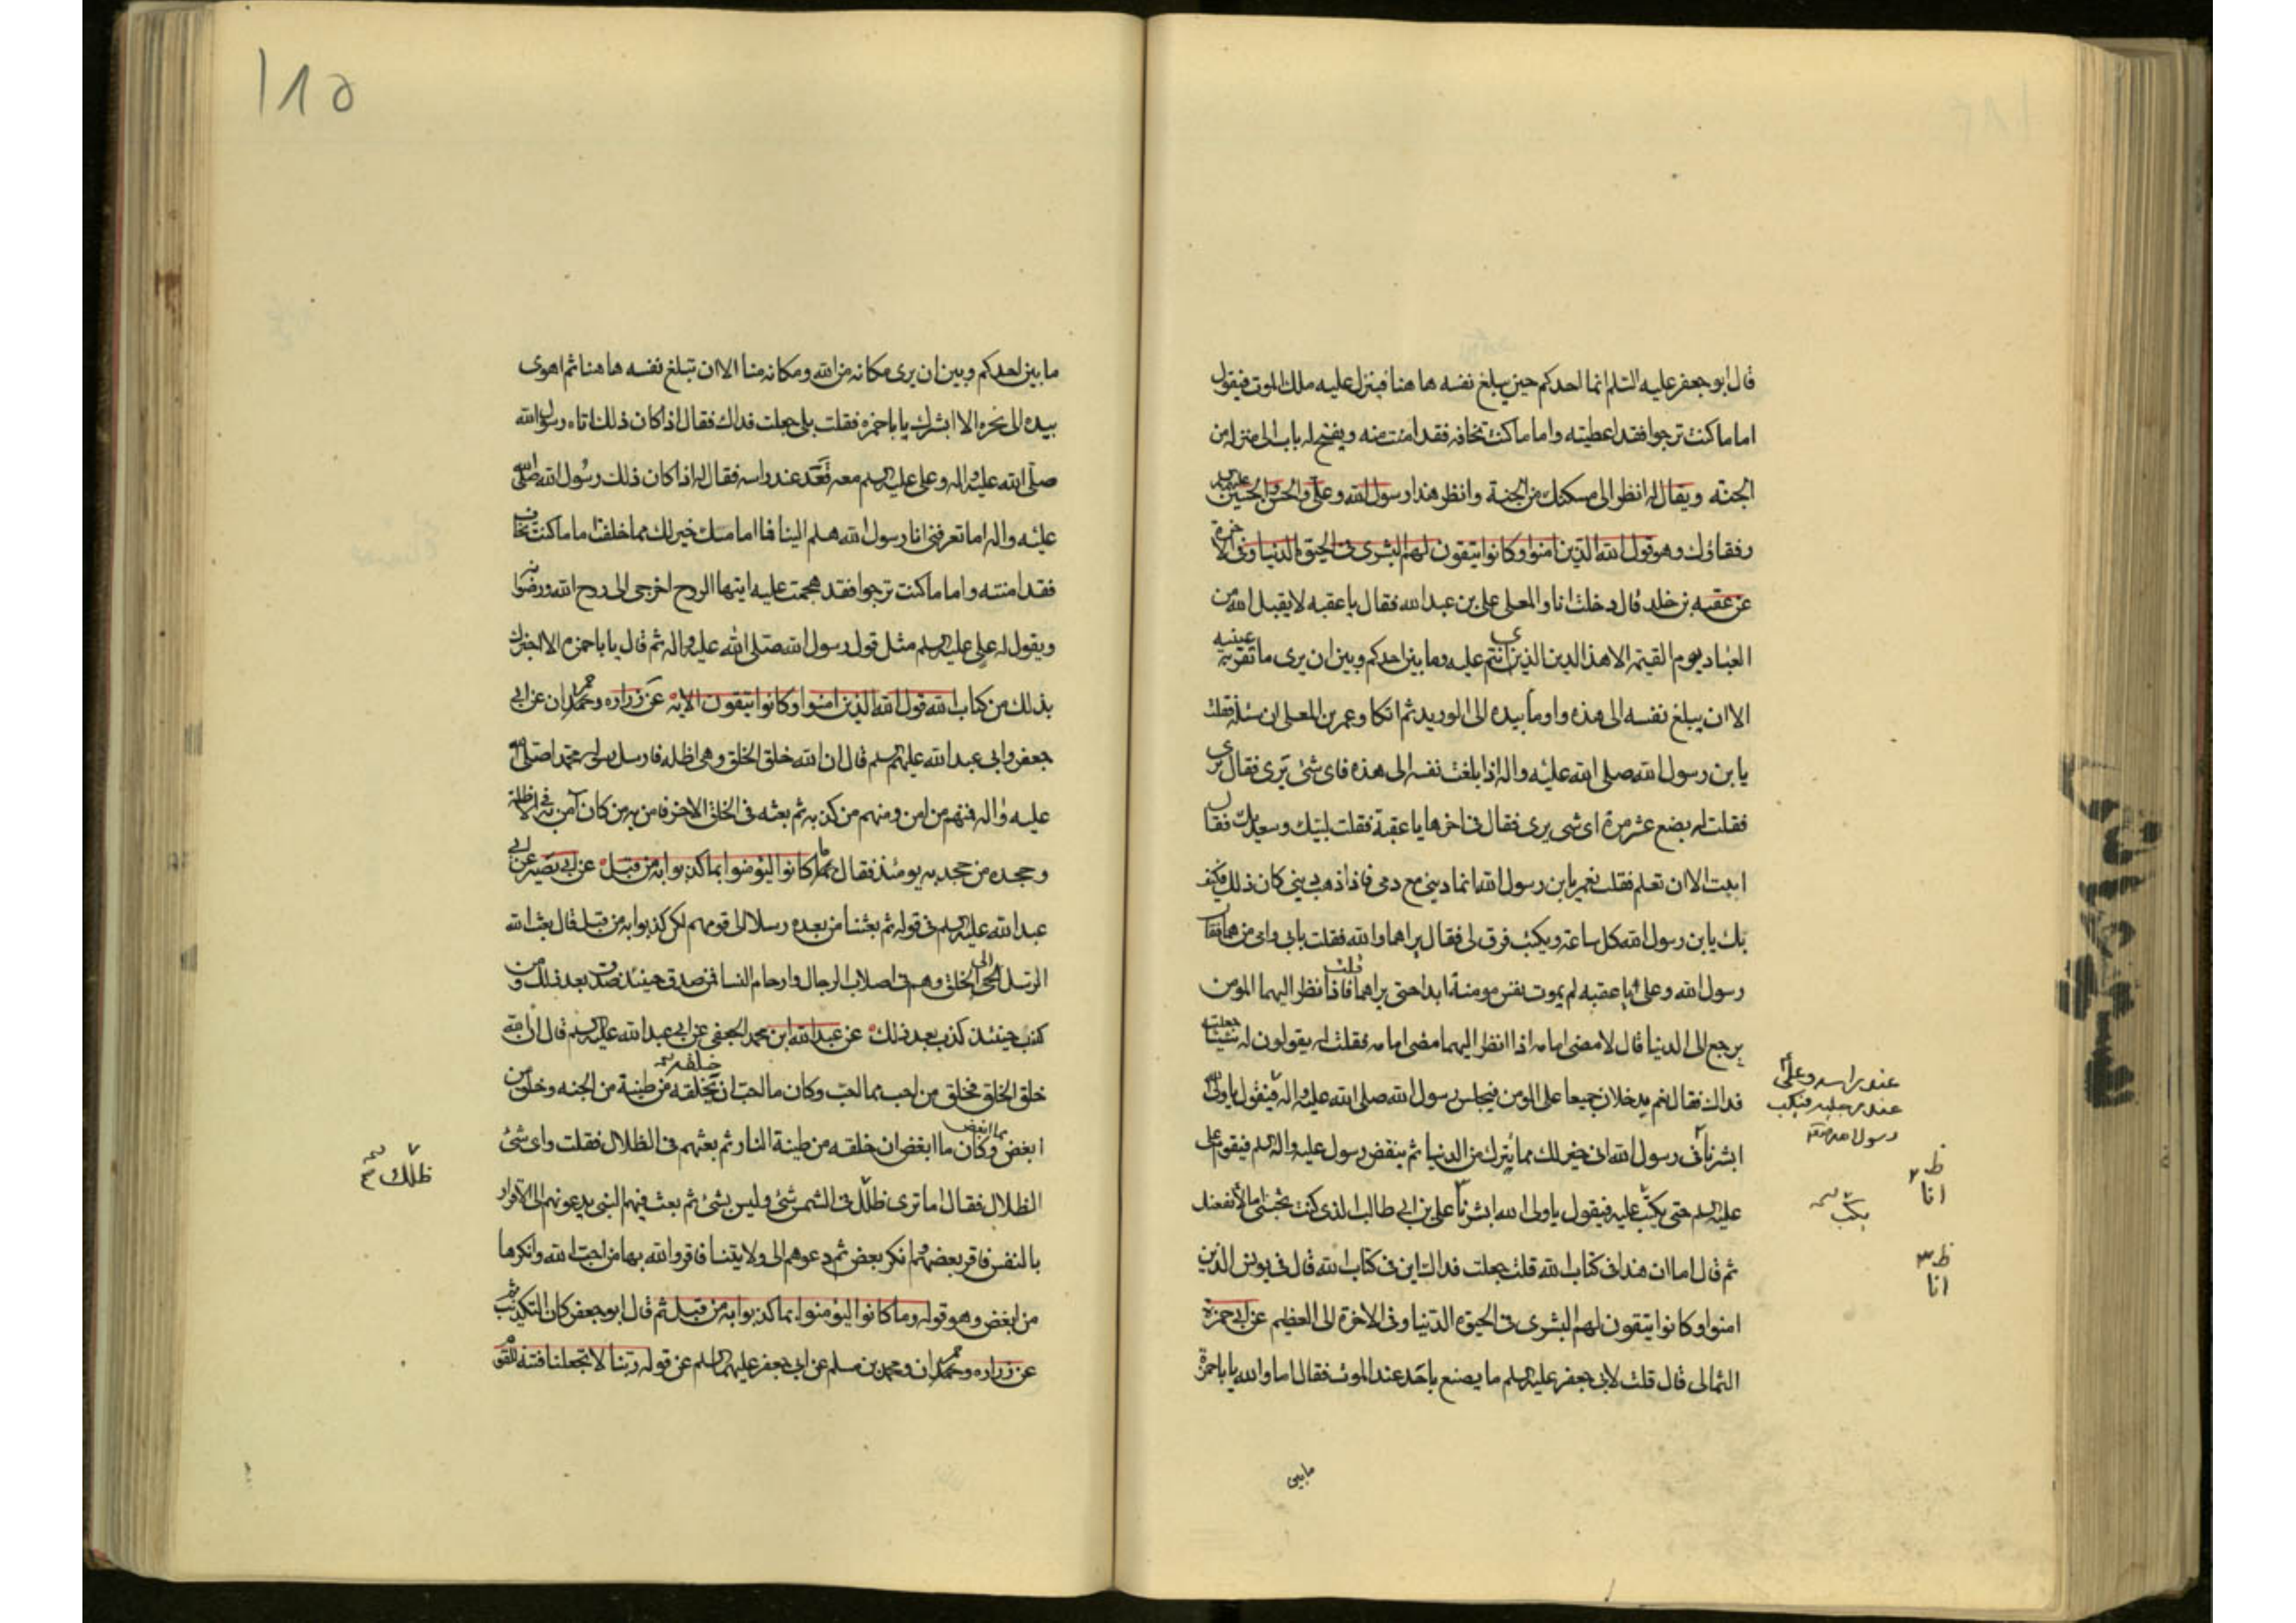 قال ابو جعفر عليه السلم انما احدكم حين يبلغ نفسه ها هنا فينزل عليه ملك الموت فيقول
اما ما كنت ترجوا فقد اعطيته واما ما كنت تخافه فقد امنت منه ويفتح له باب الى منزله من
الجنة ويقال له انظر الى مسكنك من الجنة وانظر هذا رسول الله وعلى والحسن والحسين عليهم
رفقاؤك وهو قول الله الذين امنوا وكانوا يتقون لهم البشرى فى الحيوة الدنيا وفى الاخرة
عن عقبه بن خلد قال دخلت انا والمعلى على بن عبد الله فقال يا عقبه لا يقبل الله من
العباد يوم القيمة الا هذا الدين الذى انتم عليه وما بين احدكم وبين ان يرى ما تقر به عينيه
الا ان يبلغ نفسه الى هذه واومأ بيده الى الوريد ثم اتكا وغمزن المعلى ان سئله فقلت
يابن رسول الله صلى الله عليه واله اذا بلغت نفسه الى هذه فاى شئ يرى فقال يرى
فقلت له بضع عشر مرة اى شى يرى فقال فى اخرها يا عقبة فقلت لبيك وسعديك فقال
ابيت الا ان تعلم فقلت نعم يابن رسول الله انما دينى مع دمى فاذا ذهب دينى كان ذلك فكيف
بك يابن رسول الله كل ساعة وبكيت فرق لى فقال يراهما والله فقلت بابى وامى من هما فقال
رسول الله وعلى يا عقبه لم يموت نفس مومنة ابدا حتى يراهما قلت فاذا نظر اليهما المومن
يرجع الى الدنيا قال لا مضى امامه اذا انظر اليهما مضى امامه فقلت له يقولون له شيئا جعلت
فداك فقال نعم يدخلان جميعا على المومن فيجلس رسول الله صلى الله عليه واله فيقول يا ولى الله
ابشر نا رسول الله انى خير لك مما يترك من الدنيا ثم ينهض رسول عليه واله سلم فيقوم على
عليه السلم حتى يكب عليه فيقول يا ولى الله ابشر نا على بن ابى طالب الذى كنت تحبنى اما لانفعنك
ثم قال اما ان هذا فى كتاب الله قلت جعلت فداك اين فى كتاب الله قال فى يونس الذين
امنوا وكانوا يتقون لهم البشرى فى الحيوة الدنيا وفى الاخرة الى العظيم عن ابى حمزة
الثمالى قال قلت لابى جعفر عليه السلم ما يصنع باحد عند الموت فقال اما والله يا با حمزة
عند راسه وعلى
عند رجليه فيكب
ظ
انا
يكب
ظ
انا
ما بين
١٨٥
ما بين احدكم وبين ان يرى مكانه من الله ومكانه منا الا ان تبلغ نفسه ها هنا ثم اهوى
بيده الى نحره الا ابشرك يا با حمزه فقلت بلى جعلت فداك فقال اذا كان ذلك اتاه رسول الله
صلى الله عليه واله وعلى عليه السلم معه فقعد عند راسه فقال له اذا كان ذلك رسول الله صلى الله
عليه واله اما تعرفنى انا رسول الله هلم الينا فما امامك خير لك مما خلفت اما ما كنت تخاف
فقد امنته واما ما كنت ترجوا فقد هجمت عليه ايتها الروح اخرجى الى روح الله ورضوانه
ويقول له على عليه السلم مثل قول رسول الله صلى الله عليه واله ثم قال يا با حمزه الا اخبرك
بذلك من كتاب الله قول الله الذين امنوا وكانوا يتقون الاية عن زراره وحمران عن ابى
جعفر وابى عبد الله عليهم السلم قال ان الله خلق الخلق وهى اظله فارسل رسوله محمدا صلى الله
عليه واله فمنهم من امن ومنهم من كذب به ثم بعثه فى الخلق الاخر فامن به من كان آمن به فى الاظلة
وجحده من جحد به يومئذ فقال ما كانوا ليؤمنوا بما كذبوا به من قبل عن ابى بصير عن ابى
عبد الله عليه السلم فى قوله ثم بعثنا من بعده رسلا الى قومهم لكن كذبوا به من قبل قال بعث الله
الرسل الى الخلق وهم فى اصلاب الرجال وارحام النسا فمن صدق حينئذ صدق بعد ذلك ومن
كذب حينئذ كذب بعد ذلك عن عبد الله ابن محمد الجعفى عن ابى عبد الله عليه السلم قال ان الله
خلق الخلق فخلق من احب مما احب وكان ما احب ان يخلقه من طينة من الجنه وخلق من
ابغض مما ابغض وكان ما ابغض ان خلقه من طينة النار ثم بعثهم فى الظلال فقلت واى شئ
الظلال فقال اما ترى ظلك فى الشمس شئ وليس بشئ ثم بعث فيهم النبى يدعونهم الى الاقرار
بالنفس فاقر بعضهم انكر بعض ثم دعوهم الى ولايتنا فاقر والله بها من احب الله وانكرها
من ابغض وهو قوله وما كانوا ليؤمنوا بما كذبوا به من قبل ثم قال ابو جعفر كان التكذيب ثم
عن زراره وحمران ومحمد بن مسلم عن ابى جعفر عليهما السلم عن قوله ربنا لا تجعلنا فتنة للقوم
ظلك